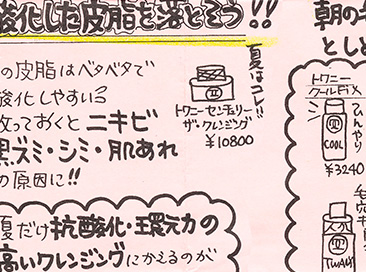 酸化した皮脂を落とそう!!
の皮脂はベタベタで
酸化しやすい
放っておくとニキビ
黒ズミ・シミ・肌あれ
の原因に!!
夏はコレ!!
トワニーセンチュリー
ザ・クレンジング
¥10800
夏だけ抗酸化・還元力の
高いクレンジングにかえるのが
朝の
としと
トワニー
クールFix
ひんやり
COOL
¥3240
TWANY